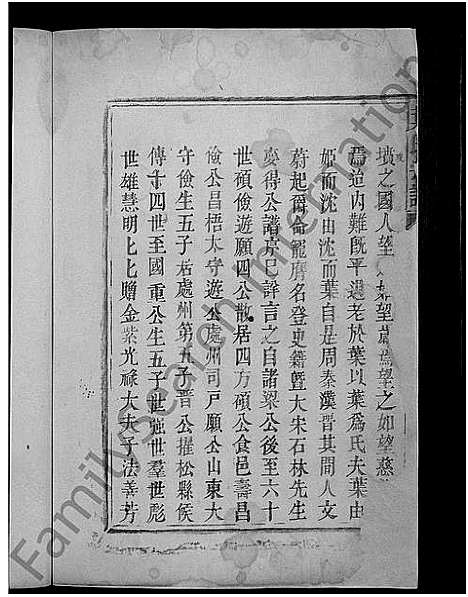 墳之國人望望歲焉望之如望慈
焉迨內難既平退老於葉以葉爲氏夫葉由
姬而沈由沈而葉自是周秦漢晋其間人文
蔚起爵命寵膺名登史籍曁大宋石林先生
夢得公譜序已詳言之自諸梁公後至六十
世碩儉遊願四公散居四方碩公食邑壽昌
儉公昌梧太守遊公處州司戸願公山東大
守儉生五子居處州第五子晋公擢松縣侯
傳十四世至國重公生五子世強世羣世彪
世雄慧明七七贈金紫光祿大夫子法善芳
FamilySearch International